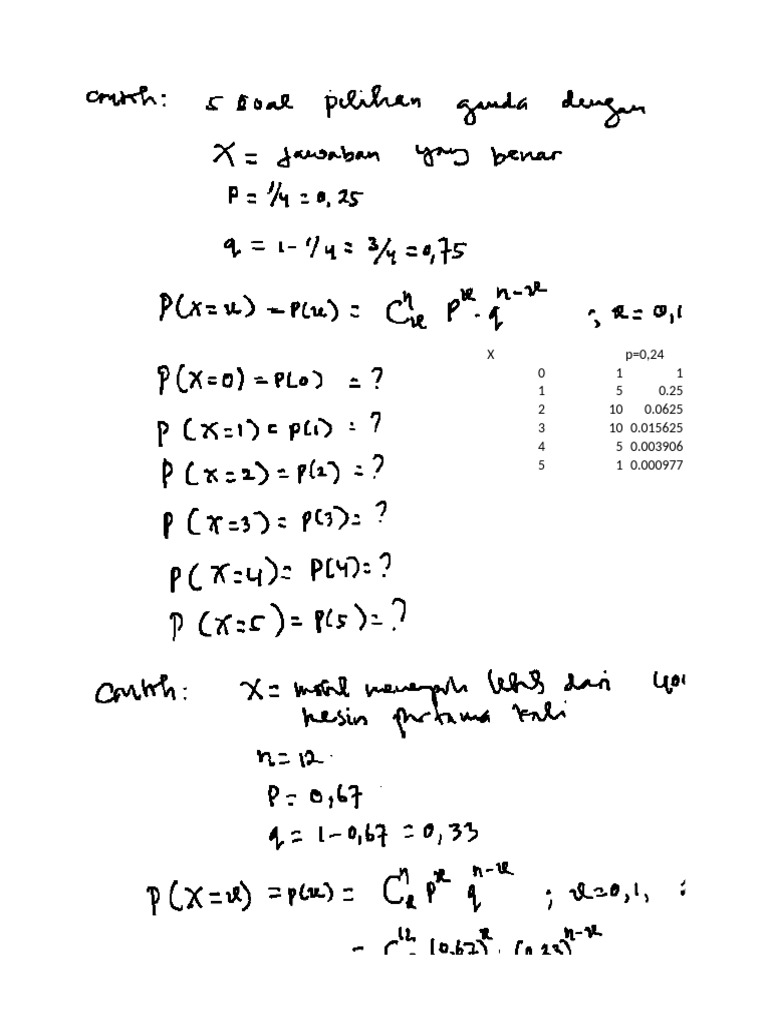 Contoh: 5 soal pilihan ganda dengan
X = jawaban yang benar
P = 1/4 = 0,25
q = 1 - 1/4 = 3/4 = 0,75
P(X=x) = P(x) = C^n_x P^x . q^{n-x} ; x = 0,1
X p=0,24
0 1 1
1 5 0.25
2 10 0.0625
3 10 0.015625
4 5 0.003906
5 1 0.000977
P(X=0) = P(0) = ?
P(X=1) = P(1) = ?
P(X=2) = P(2) = ?
P(X=3) = P(3) = ?
P(X=4) = P(4) = ?
P(X=5) = P(5) = ?
Contoh: X = mobil menempuh lebih dari
mesin pertama kali
n = 12
P = 0,67
q = 1 - 0,67 = 0,33
P(X=x) = P(x) = C^n_x P^x q^{n-x} ; x = 0,1,
= C^12 (0,67)^x . (0,33)^{n-x}